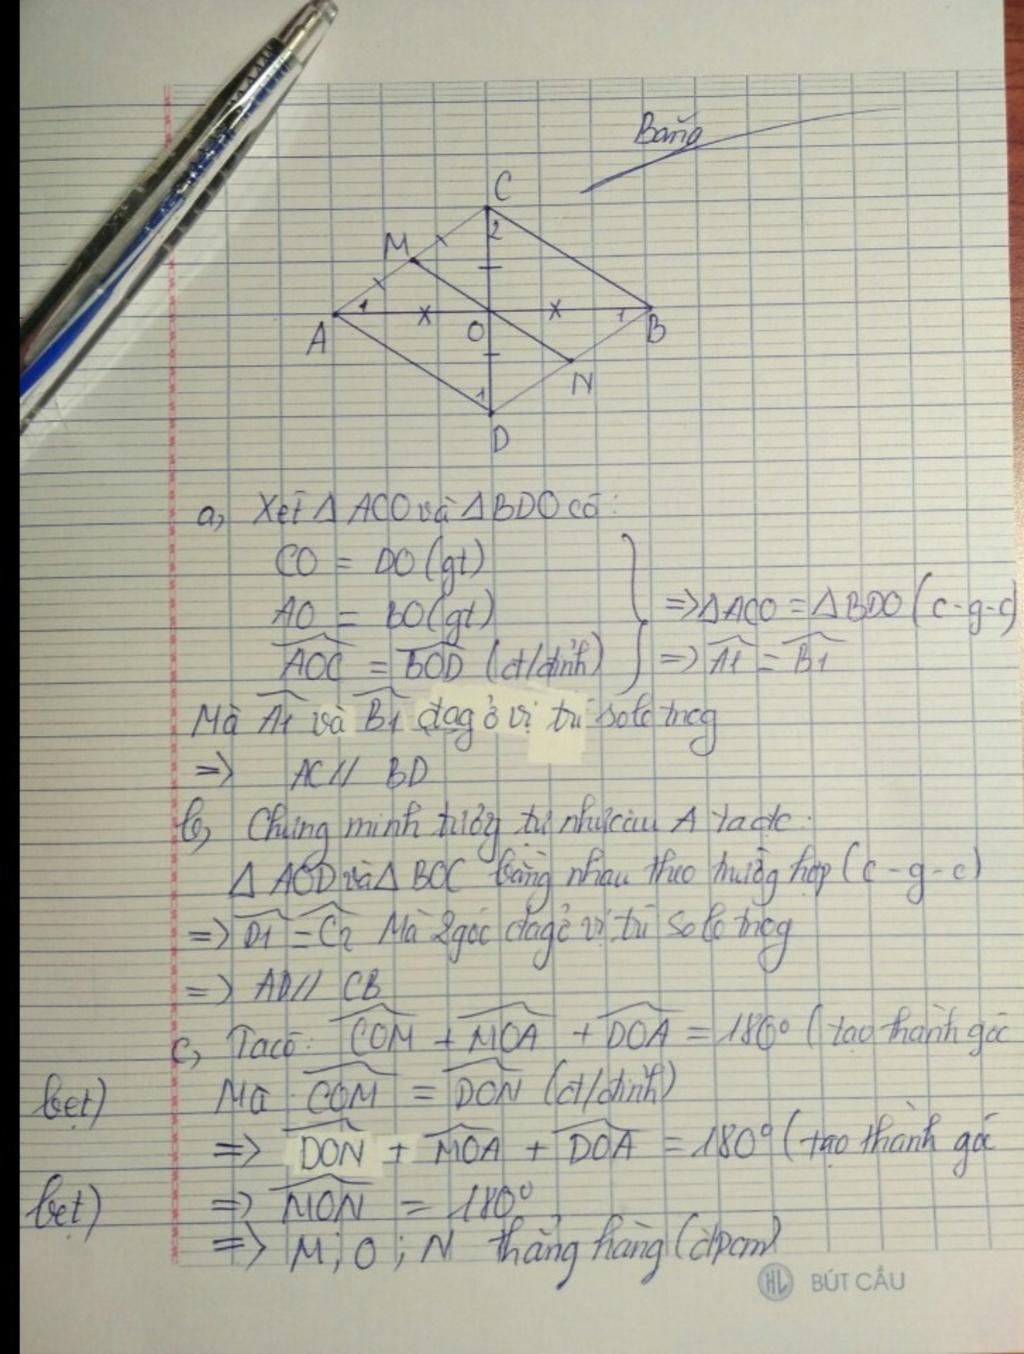 Bang
C
2
M
1
A
O
1
B
N
1
D
a, Xét Δ ACO và Δ BDO có:
CO = DO (gt)
AO = BO (gt)
⇒ Δ ACO = Δ BDO (c-g-c)
AOC = BOD (đ/đỉnh)
⇒ A1 = B1
Mà A1 và B1 đag ở vị trí sole trog
⇒ AC // BD
b, Chứng minh tương tự như câu A ta đc:
Δ AOD và Δ BOC bằng nhau theo trường hợp (c-g-c)
⇒ D1 = C2 Mà 2 góc đag ở vị trí sole trog
⇒ AD // CB
c, Ta có: COM + MOA + DOA = 180° (tạo thành góc
bẹt)
Mà COM = DON (đ/đỉnh)
⇒ DON + MOA + DOA = 180° (tạo thành góc
bẹt)
⇒ MON = 180°
⇒ M; O; N thẳng hàng (đpcm)
HL BÚT CẦU